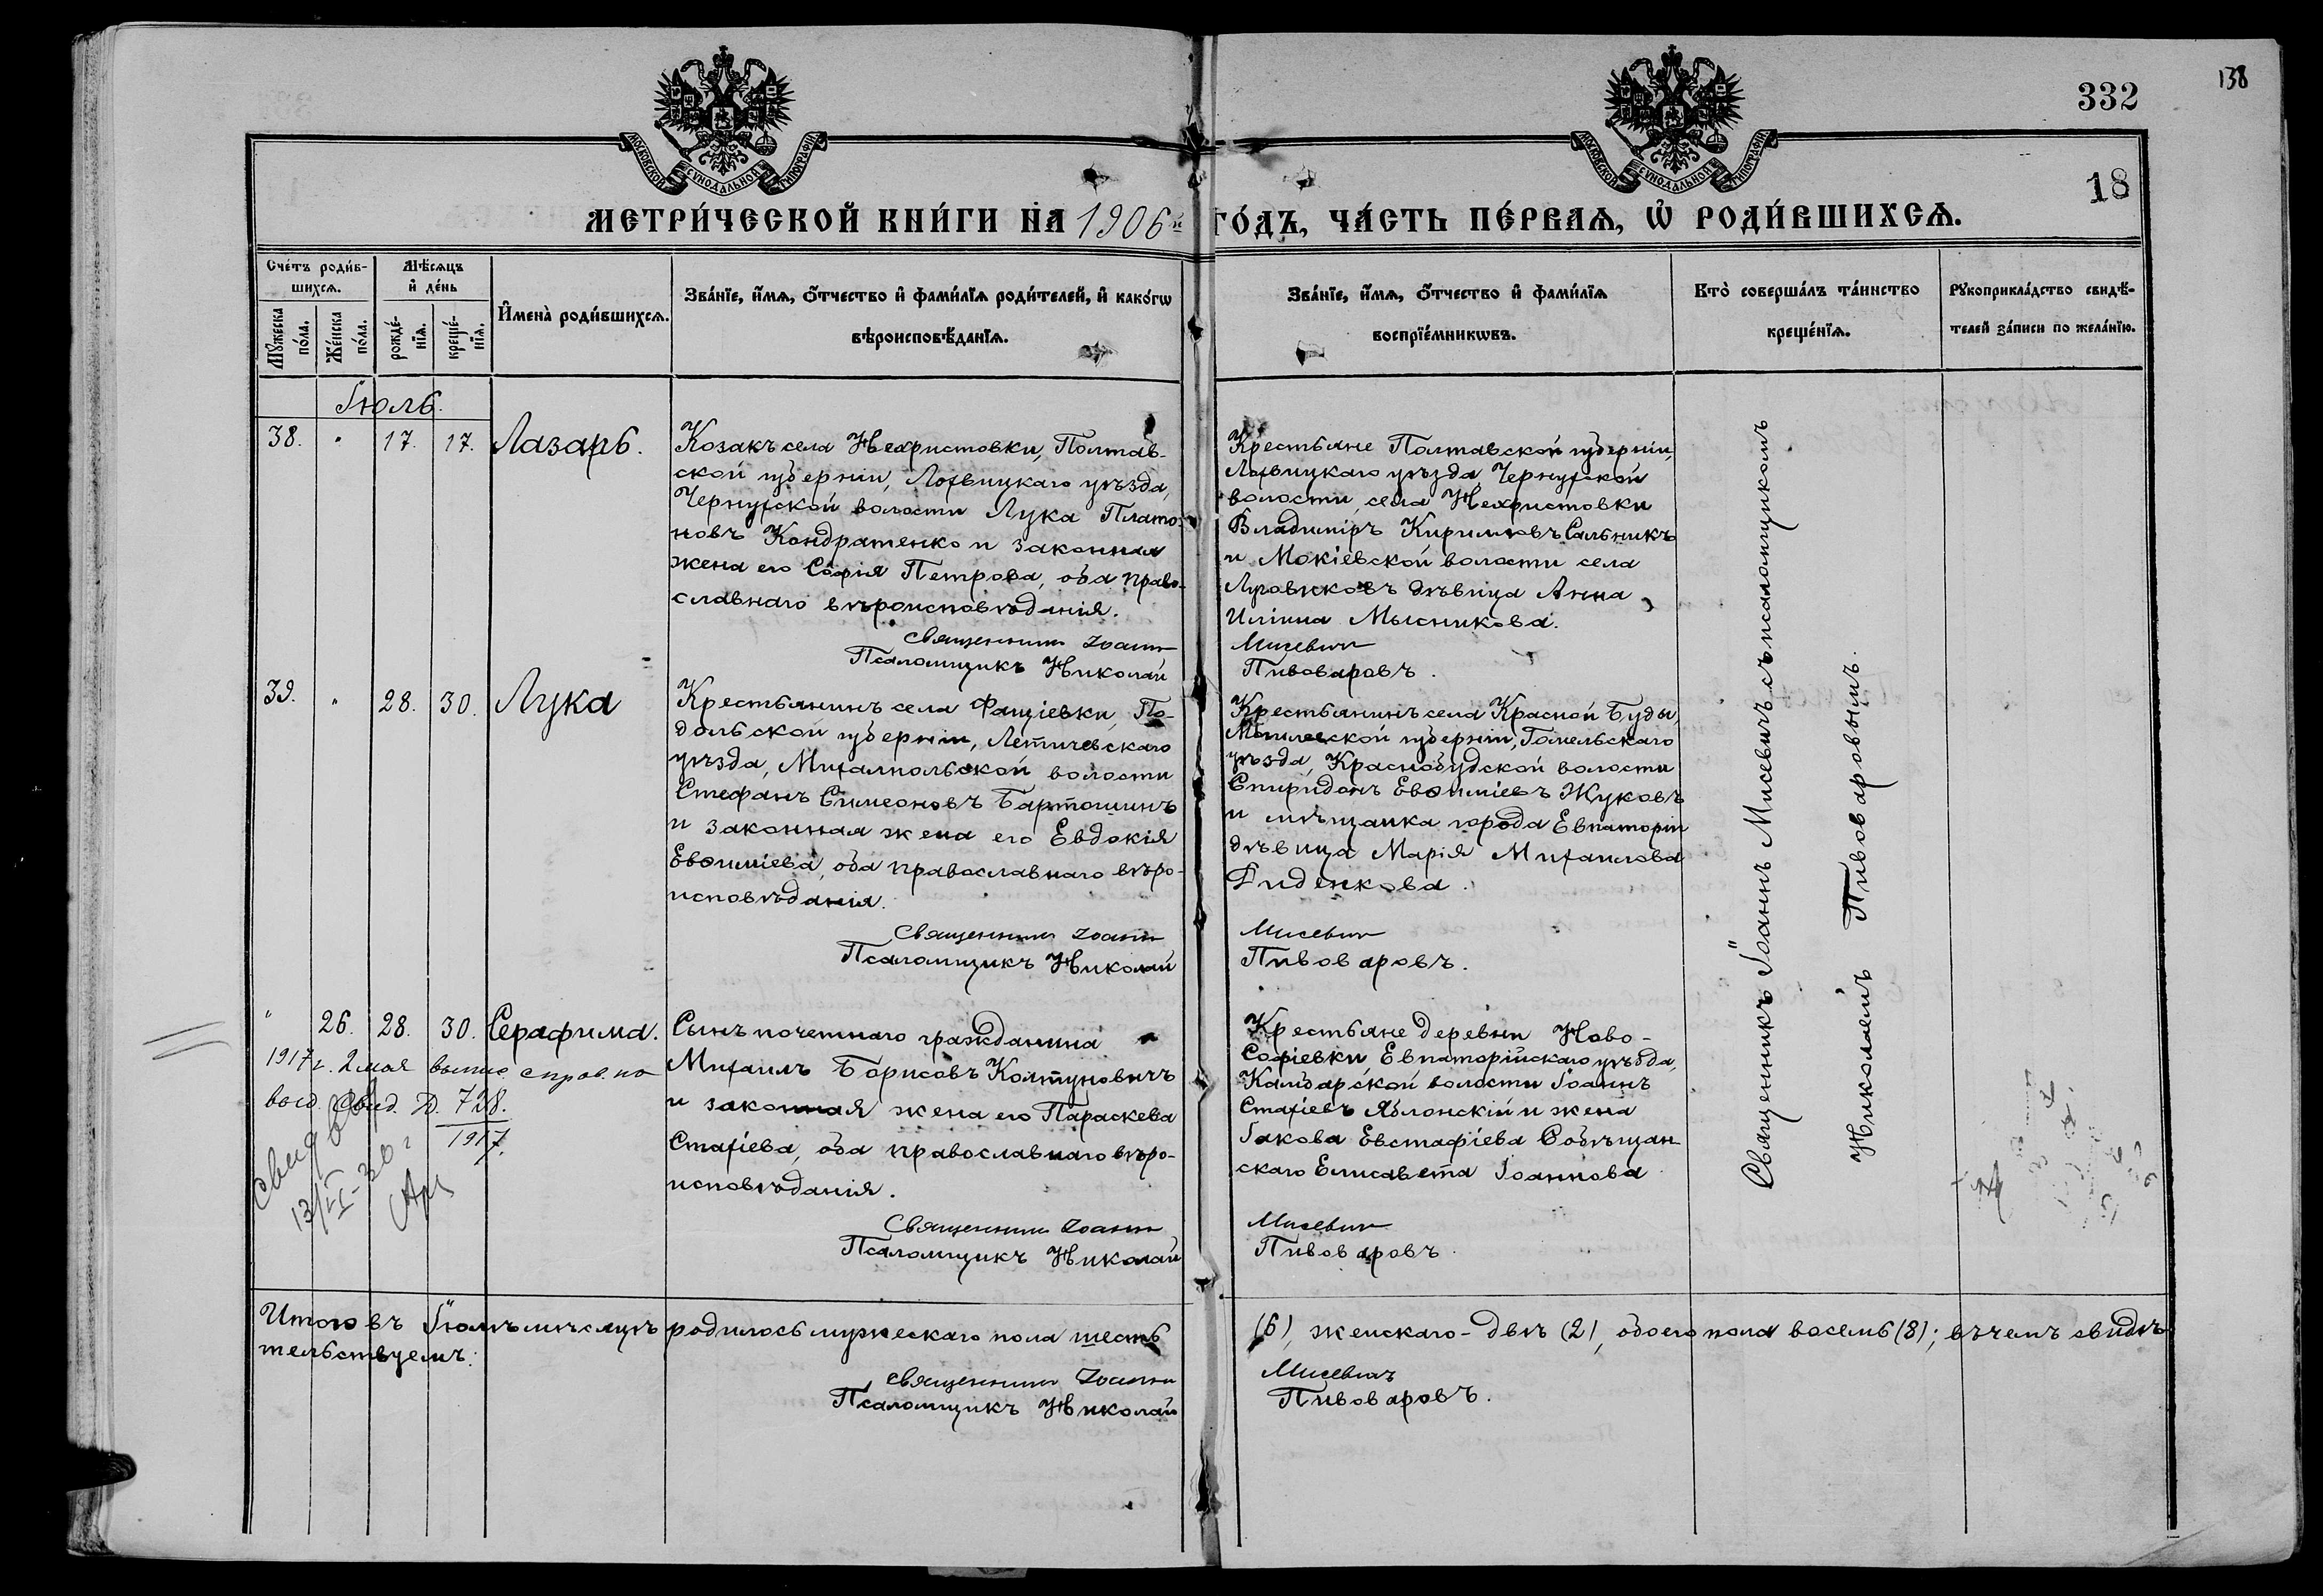 138
332
18
МОСКОВСКОЙ СѴНОДАЛЬНОЙ ТИПОГРАФІИ
МОСКОВСКОЙ СѴНОДАЛЬНОЙ ТИПОГРАФІИ
МЕТРИ́ЧЕСКОЙ КНИ́ГИ НА 1906й ГО́ДЪ, ЧА́СТЬ ПЕ́РВАѦ, Ѡ҆ РОДИ́ВШИХСѦ.
Сче́тъ роди́в-
шихсѧ.
Мѣ́сѧцъ
и҆ де́нь
Мꙋ́жеска
по́ла.
Же́нска
по́ла.
рожде́-
нїѧ.
креще́-
нїѧ.
И҆мена̀ роди́вшихсѧ.
Зва́нїе, и҆́мѧ, ѻ҆́тчество и҆ фами́лїѧ роди́телей, и҆ како́гѡ
вѣроисповѣ́данїѧ.
Зва́нїе, и҆́мѧ, ѻ҆́тчество и҆ фами́лїѧ
воспрїе́мникѡвъ.
Кто̀ соверша́лъ та́инство
креще́нїѧ.
Рꙋкоприкла́дство свидѣ́-
телей за́писи по жела́нїю.
Іюль.
38. " 17. 17. Лазарь.
Козакъ села Нехристовки, Полтав-
ской губерніи, Лохвицкаго уѣзда,
Чернухской волости Лука Плато-
новъ Кондратенко и законная
жена его Софія Петрова, оба право-
славнаго вѣроисповѣданія.
Священникъ Іоаннъ
Псаломщикъ Николай
Крестьяне Полтавской губерніи,
Лохвицкаго уѣзда, Чернухской
волости, села Нехристовки
Владиміръ Кириловъ Сальникъ
и Мокіевской волости села
Луговиковъ дѣвица Анна
Иліина Мысникова.
Мисевичъ
Пивоваровъ.
39. " 28. 30. Лука
Крестьянинъ села Фащіевки, По-
дольской губерніи, Летичевскаго
уѣзда, Михалпольской волости
Стефанъ Симеоновъ Бартошинъ
и законная жена его Евдокія
Евѳиміева, оба православнаго вѣро-
исповѣданія.
Священникъ Іоаннъ
Псаломщикъ Николай
Крестьянинъ села Красной Буды,
Могилевской губерніи, Гомельскаго
уѣзда, Краснобудской волости
Спиридонъ Евѳиміевъ Жуковъ
и мѣщанка города Евпаторіи
дѣвица Марія Михаилова
Диденкова.
Мисевичъ
Пивоваровъ.
" 26. 28. 30. Серафима.
1917 г. 2 мая выдано справ. по
д. 728.
1917.
13/IX-20 г
Сынъ почетнаго гражданина
Михаилъ Борисовъ Колтуновичъ
и законная жена его Параскева
Стахіева, оба православнаго вѣро-
исповѣданія.
Священникъ Іоаннъ
Псаломщикъ Николай
Крестьяне деревни Ново-
Софіевки Евпаторійскаго уѣзда,
Камбарской волости Іоаннъ
Стахіевъ Яблонскій и жена
Іакова Евстафіева Собѣщан-
скаго Елисавета Іоаннова
Мисевичъ
Пивоваровъ.
Священникъ Іоаннъ Мисевичъ съ псаломщикомъ
Николаемъ Пивоваровымъ.
Итого въ Іюлѣ мѣсяцѣ родилось мужескаго пола шесть (6), женскаго - двѣ (2), обоего пола восемь (8); въ чемъ свидѣ-
тельствуемъ:
Священникъ Іоаннъ Мисевичъ
Псаломщикъ Николай Пивоваровъ.